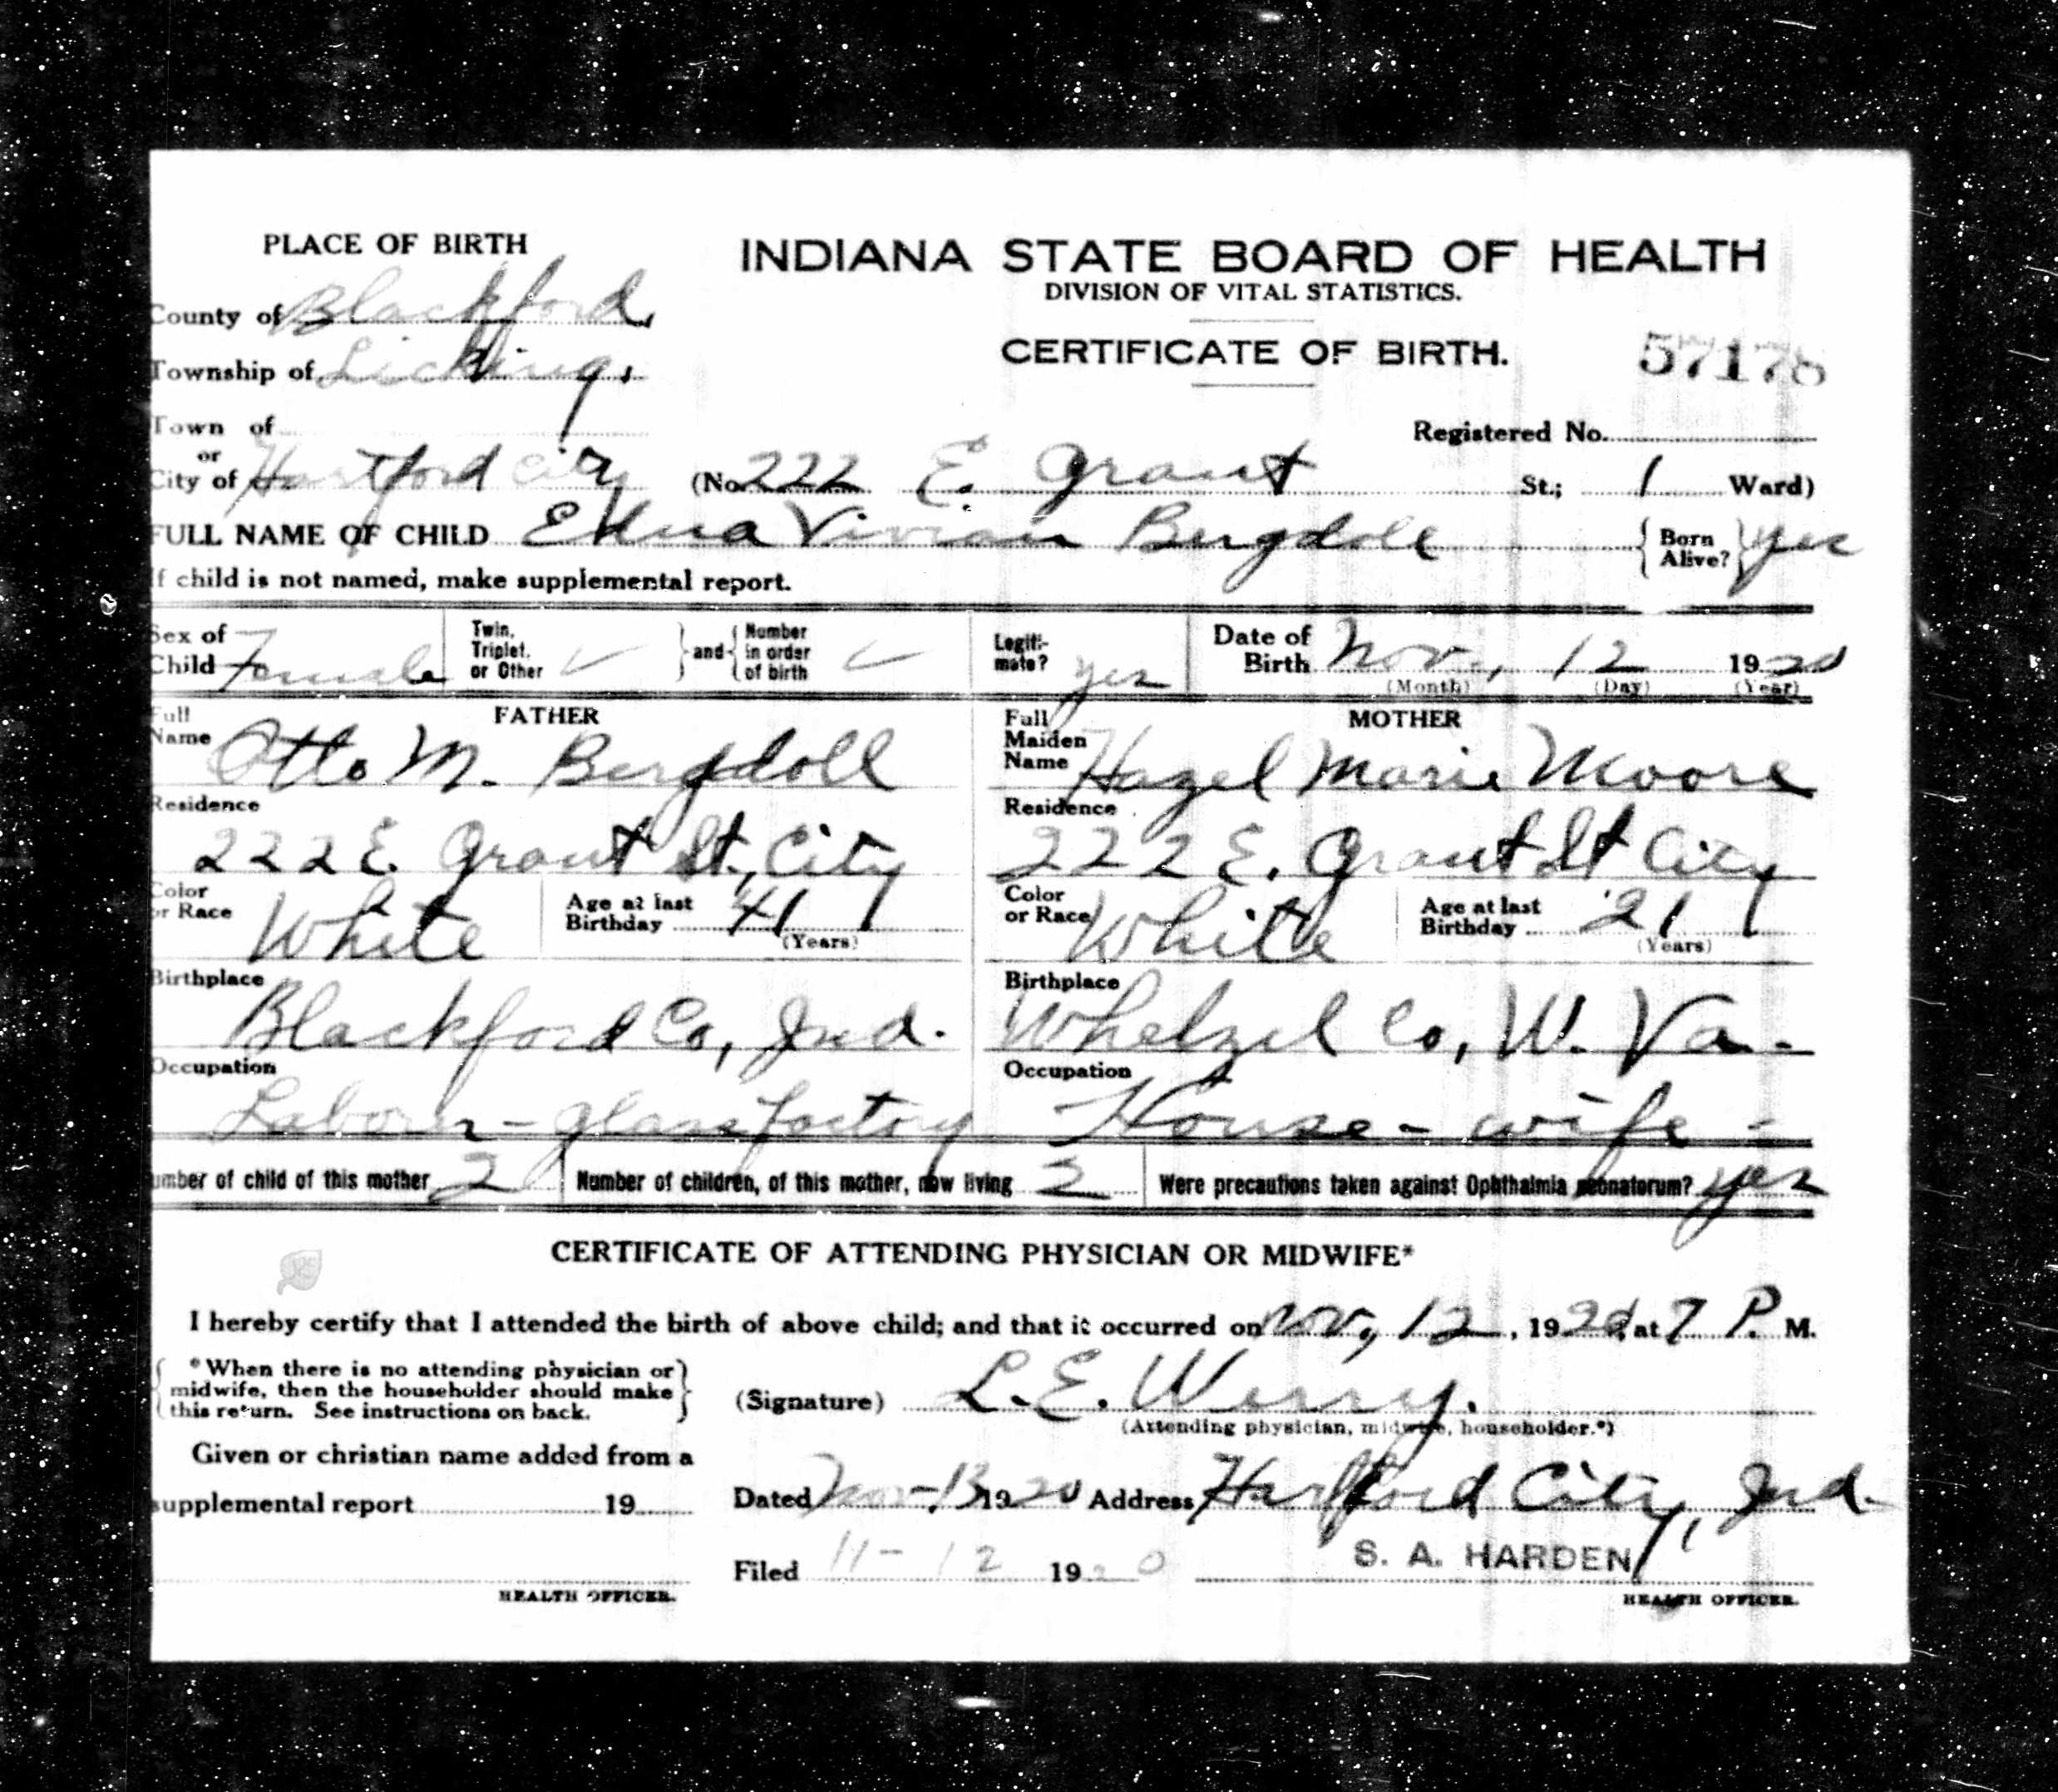 PLACE OF BIRTH
INDIANA STATE BOARD OF HEALTH
DIVISION OF VITAL STATISTICS.
County of Blackford,
CERTIFICATE OF BIRTH. 57178
Township of Licking,
Town of
Registered No.
or
City of Hartford City (No 222 E. Grant St.; 1 Ward)
FULL NAME OF CHILD Edna Vivian Bergdoll { Born Alive? } yes
If child is not named, make supplemental report.
Sex of Child Female Twin, Triplet, or Other ✓ } and { Number in order of birth ✓ Legiti-mate? yes Date of Birth Nov., 12 1920
(Month) (Day) (Year)
FATHER MOTHER
Full Name Otto M. Bergdoll Full Maiden Name Hazel Marie Moore
Residence Residence
222 E. Grant St., City 222 E. Grant St City
Color or Race White Age at last Birthday 41 (Years) Color or Race White Age at last Birthday 21 (Years)
Birthplace Birthplace
Blackford Co, Ind. Whelzel Co, W. Va.
Occupation Occupation
Laborer - glass factory House - wife -
umber of child of this mother 2 Number of children, of this mother, now living 2 Were precautions taken against Ophthalmia neonatorum? yes
CERTIFICATE OF ATTENDING PHYSICIAN OR MIDWIFE*
I hereby certify that I attended the birth of above child; and that it occurred on Nov, 12, 1920, at 7 P. M.
{ *When there is no attending physician or }
midwife, then the householder should make
this return. See instructions on back.
(Signature) L. E.
(Attending physician, midwife, householder.*)
Given or christian name added from a
supplemental report 19
Dated Nov-13 1920 Address Hartford City, Ind.
Filed 11-12 1920 S. A. HARDEN
HEALTH OFFICER. HEALTH OFFICER.